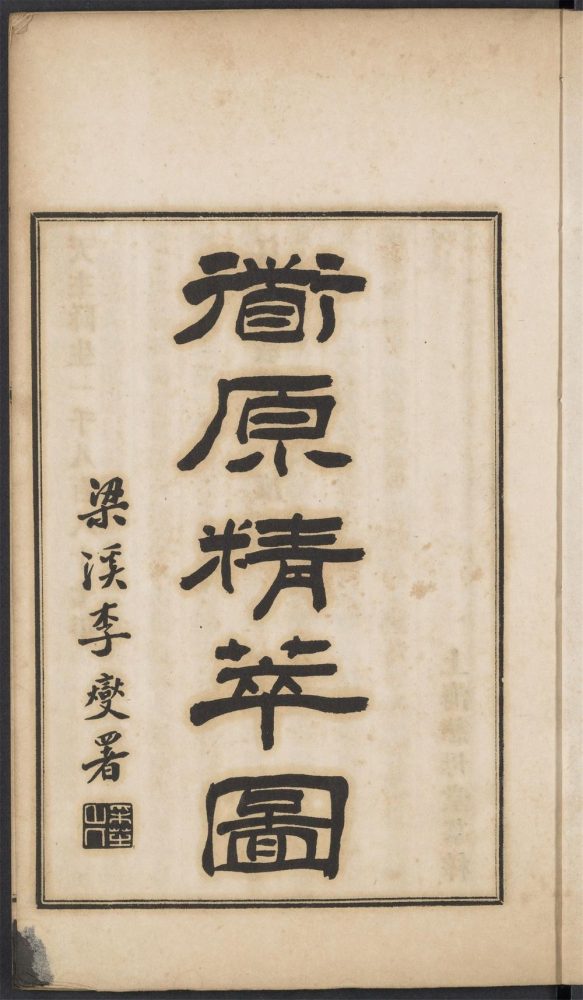 衜原精萃圖
梁溪李燮署